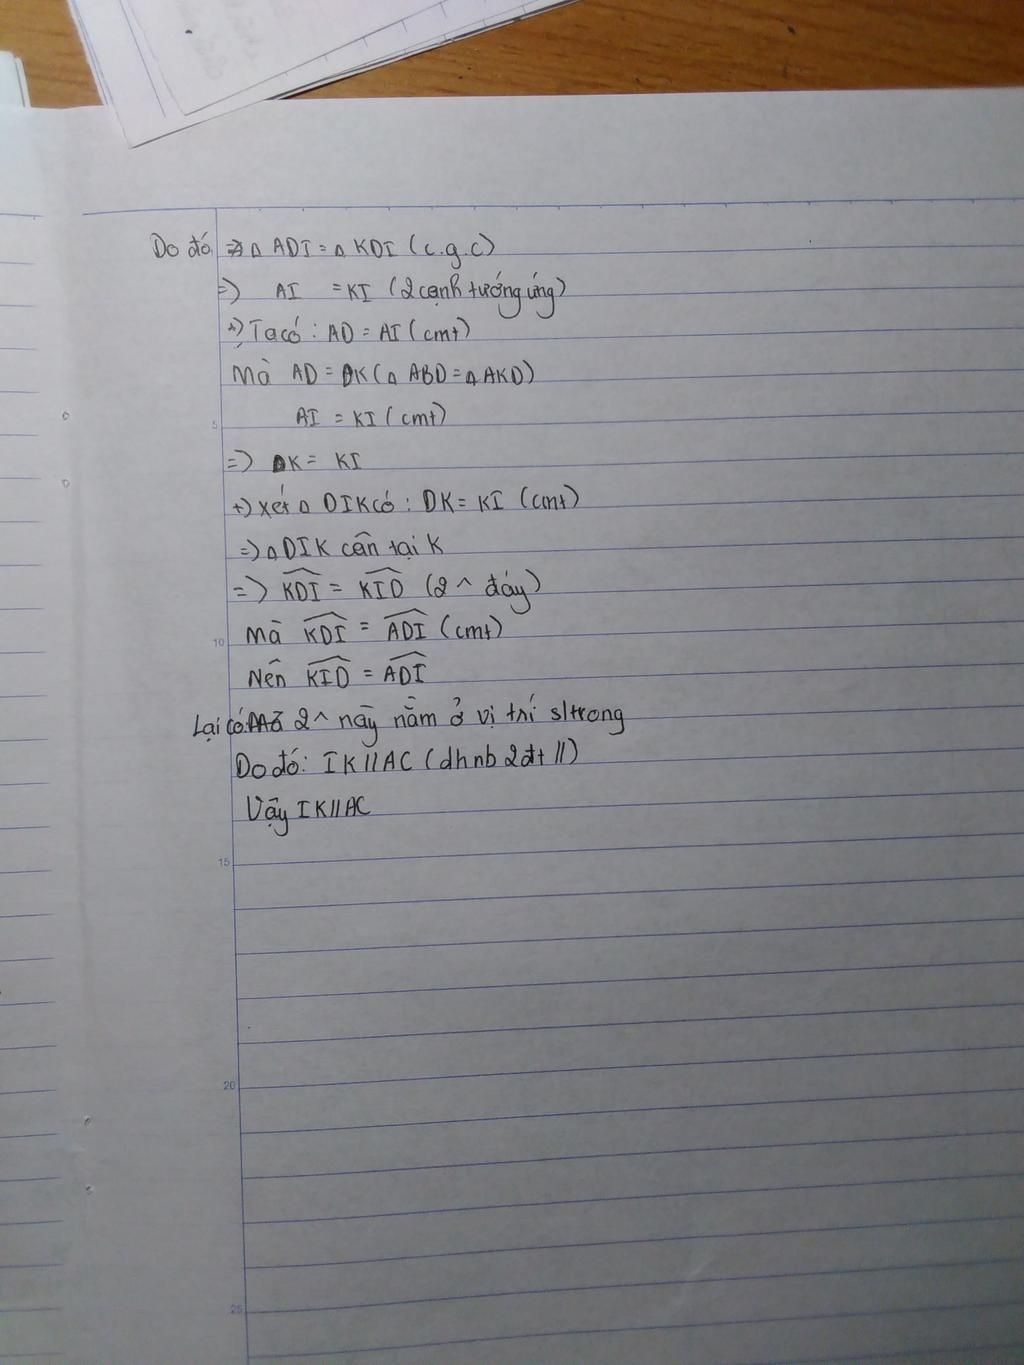 Do đó => △ ADI = △ KDI (c.g.c)
=) AI = KI (2 cạnh tướng ứng)
+) Ta có : AD = AI (cmt)
Mà AD = DK (△ ABD = △ AKD)
AI = KI (cmt)
=) DK = KI
+) Xét △ DIK có : DK = KI (cmt)
=) △ DIK cân tại K
=) \widehat{KDI} = \widehat{KID} (2 ^ đáy)
Mà \widehat{KDI} = \widehat{ADI} (cmt)
Nên \widehat{KID} = \widehat{ADI}
Lại có 2 ^ này nằm ở vị trí sltrong
Do đó: IK // AC (dhnb 2đt //)
Vậy IK // AC
5
10
15
20
25